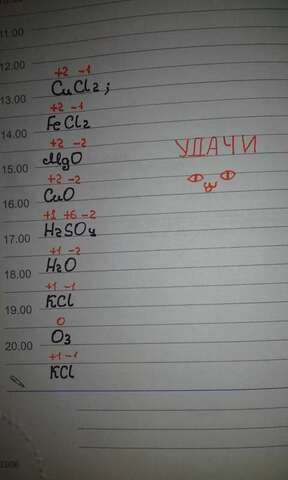 11.00
12.00
+2 -1
CuCl2;
13.00
+2 -1
FeCl2
14.00
УДАЧИ
+2 -2
MgO
15.00
+2 -2
CuO
16.00
+1 +6 -2
H2SO4
17.00
+1 -2
H2O
18.00
+1 -1
KCl
19.00
0
O3
20.00
+1 -1
KCl